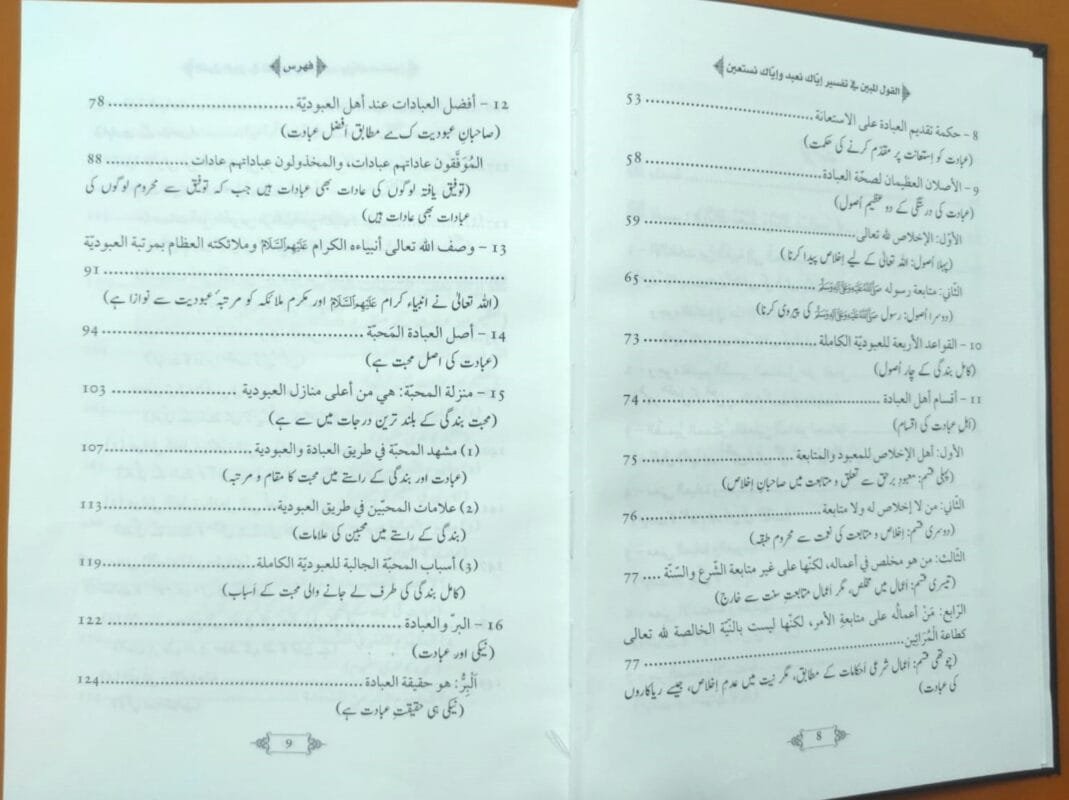 القول المبين في تفسير إيّاك نعبد وإيّاك نستعين
8 - حكمة تقديم العبادة على الاستعانة ........ 53
(عبادت کو اِستعانت پر مقدّم کرنے کی حکمت)
9 - الأصلان العظيمان لصحّة العبادة ........ 58
(عبادت کی درستگی کے دو عظیم اُصول)
الأوّل: الإخلاص لله تعالى ........ 59
(پہلا اُصول: اللہ تعالیٰ کے لیے اِخلاص پیدا کرنا)
الثّاني: متابعة رسوله ﷺ ........ 65
(دوسرا اُصول: رسول ﷺ کی پیروی کرنا)
10 - القواعد الأربعة للعبوديّة الكاملة ........ 73
(کامل بندگی کے چار اُصول)
11 - أقسام أهل العبادة ........ 74
(اَہلِ عبادت کی اقسام)
الأول: أهل الإخلاص للمعبود والمتابعة ........ 75
(پہلی قسم: معبودِ برحق سے تعلق و متابعت میں صاحبانِ اِخلاص)
الثّاني: من لا إخلاص له ولا متابعة ........ 76
(دوسری قسم: اِخلاص و متابعت کی نعمت سے محروم طبقہ)
الثّالث: من هو مخلص في أعماله، لكنّها على غير متابعة الشّرع والسّنّة .... 77
(تیسری قسم: اَعمال میں مخلص، مگر اَعمال متابعتِ سنت سے خارج)
الرّابع: مَنْ أعمالُه على متابعةِ الأمر، لكنّها ليست بالنيّة الخالصة لله تعالى
كطاعة الْمُرَائِين ........ 77
(چوتھی قسم: اَعمال شرعی اَحکامات کے مطابق، مگر نیت میں عدمِ اِخلاص، جیسے ریاکاروں
کی عبادت)
8
فهرس
12 - أفضل العبادات عند أهل العبوديّة ........ 78
(صاحبانِ عبودیت کے مطابق اَفضل عبادت)
المُوَفَّقون عاداتهم عبادات، والمخذولون عباداتهم عادات ........ 88
(توفیق یافتہ لوگوں کی عادات بھی عبادات ہیں جب کہ توفیق سے محروم لوگوں کی
عبادات بھی عادات ہیں)
13 - وصف الله تعالى أنبياءه الكرام عَلَيْهِمُ السَّلَام وملائكته العظام بمرتبة العبوديّة
........ 91
(اللہ تعالیٰ نے انبیاء کرام عَلَيْهِمُ السَّلَام اور مکرم ملائکہ کو مرتبۂ عبودیت سے نوازا ہے)
14 - أصل العبادة المَحبّة ........ 94
(عبادت کی اصل محبت ہے)
15 - منزلة المحبّة: هي من أعلى منازل العبودية ........ 103
(محبت بندگی کے بلند ترین درجات میں سے ہے)
(1) مشهد المحبّة في طريق العبادة والعبودية ........ 107
(عبادت اور بندگی کے راستے میں محبت کا مقام و مرتبہ)
(2) علامات المحبّين في طريق العبودية ........ 113
(بندگی کے راستے میں محبین کی علامات)
(3) أسباب المحبّة الجالبة للعبوديّة الكاملة ........ 119
(کامل بندگی کی طرف لے جانے والی محبت کے اَسباب)
16 - البرّ والعبادة ........ 122
(نیکی اور عبادت)
اَلْبِرُّ: هو حقيقة العبادة ........ 124
(نیکی ہی حقیقتِ عبادت ہے)
9